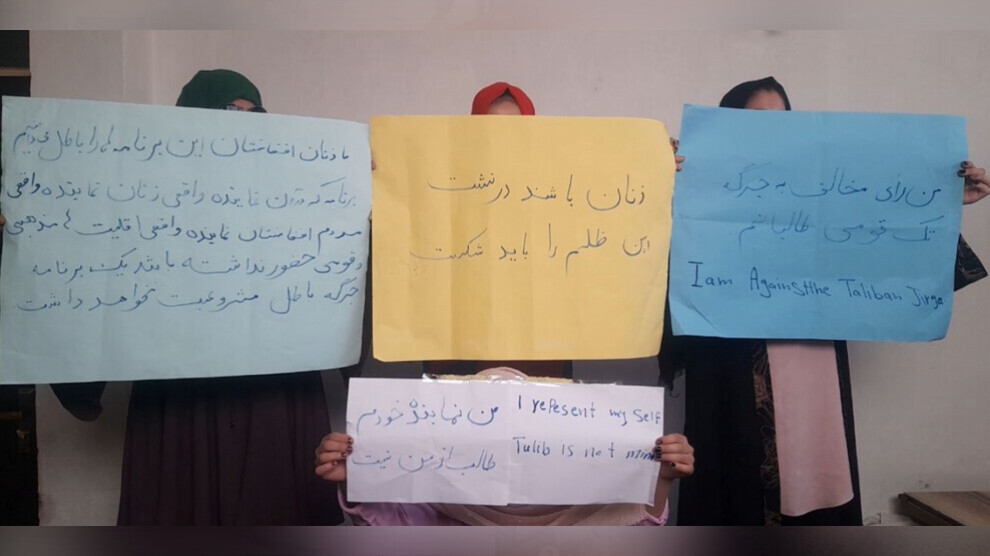 ما زنان افغانستان این برنامه ها را باطل میدانیم
برنامه که درآن نماینده واقعی زنان نماینده واقعی
مردم افغانستان نماینده واقعی اقلیت ها مذهبی
و قومی حضور نداشته باشد یک برنامه
جرگه باطل مشروعیت نخواهد داشت
زنان باشند در نشت
این ظلم را باید شکست
من رای مخالف به جرگه
تک قومی طالبانم
I am Against the Taliban Jirga
من نماینده خودم
طالب از من نیست
I repesent my self
Tulib is not mine